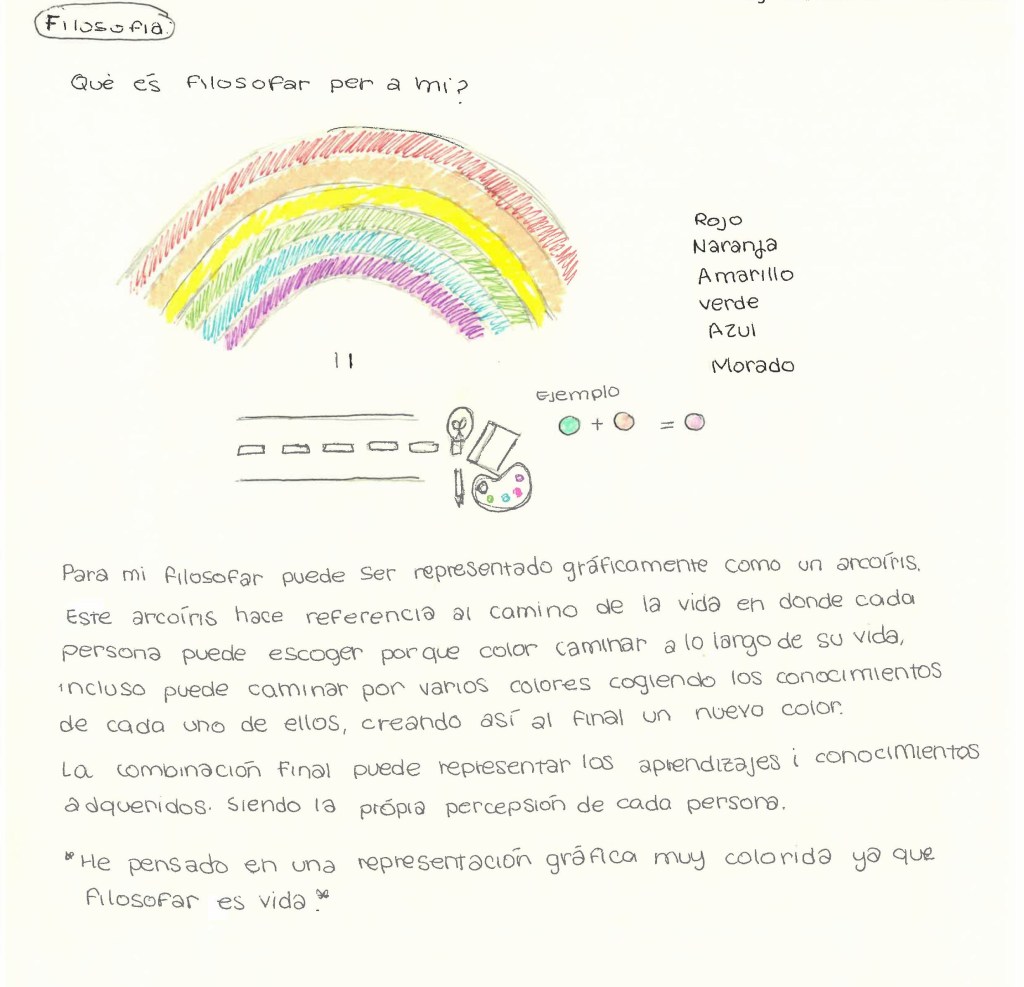 Filosofia.
Què és filosofar per a mi?
Rojo
Naranja
Amarillo
verde
Azul
Morado
Ejemplo
+ =
Para mi filosofar puede ser representado gráficamente como un arcoíris.
Este arcoíris hace referencia al camino de la vida en donde cada
persona puede escoger porque color caminar a lo largo de su vida,
incluso puede caminar por varios colores cogiendo los conocimientos
de cada uno de ellos, creando así al final un nuevo color.
La combinación final puede representar los aprendizajes i conocimientos
adqueridos. Siendo la própia percepsión de cada persona.
*He pensado en una representación gráfica muy colorida ya que
filosofar es vida.*